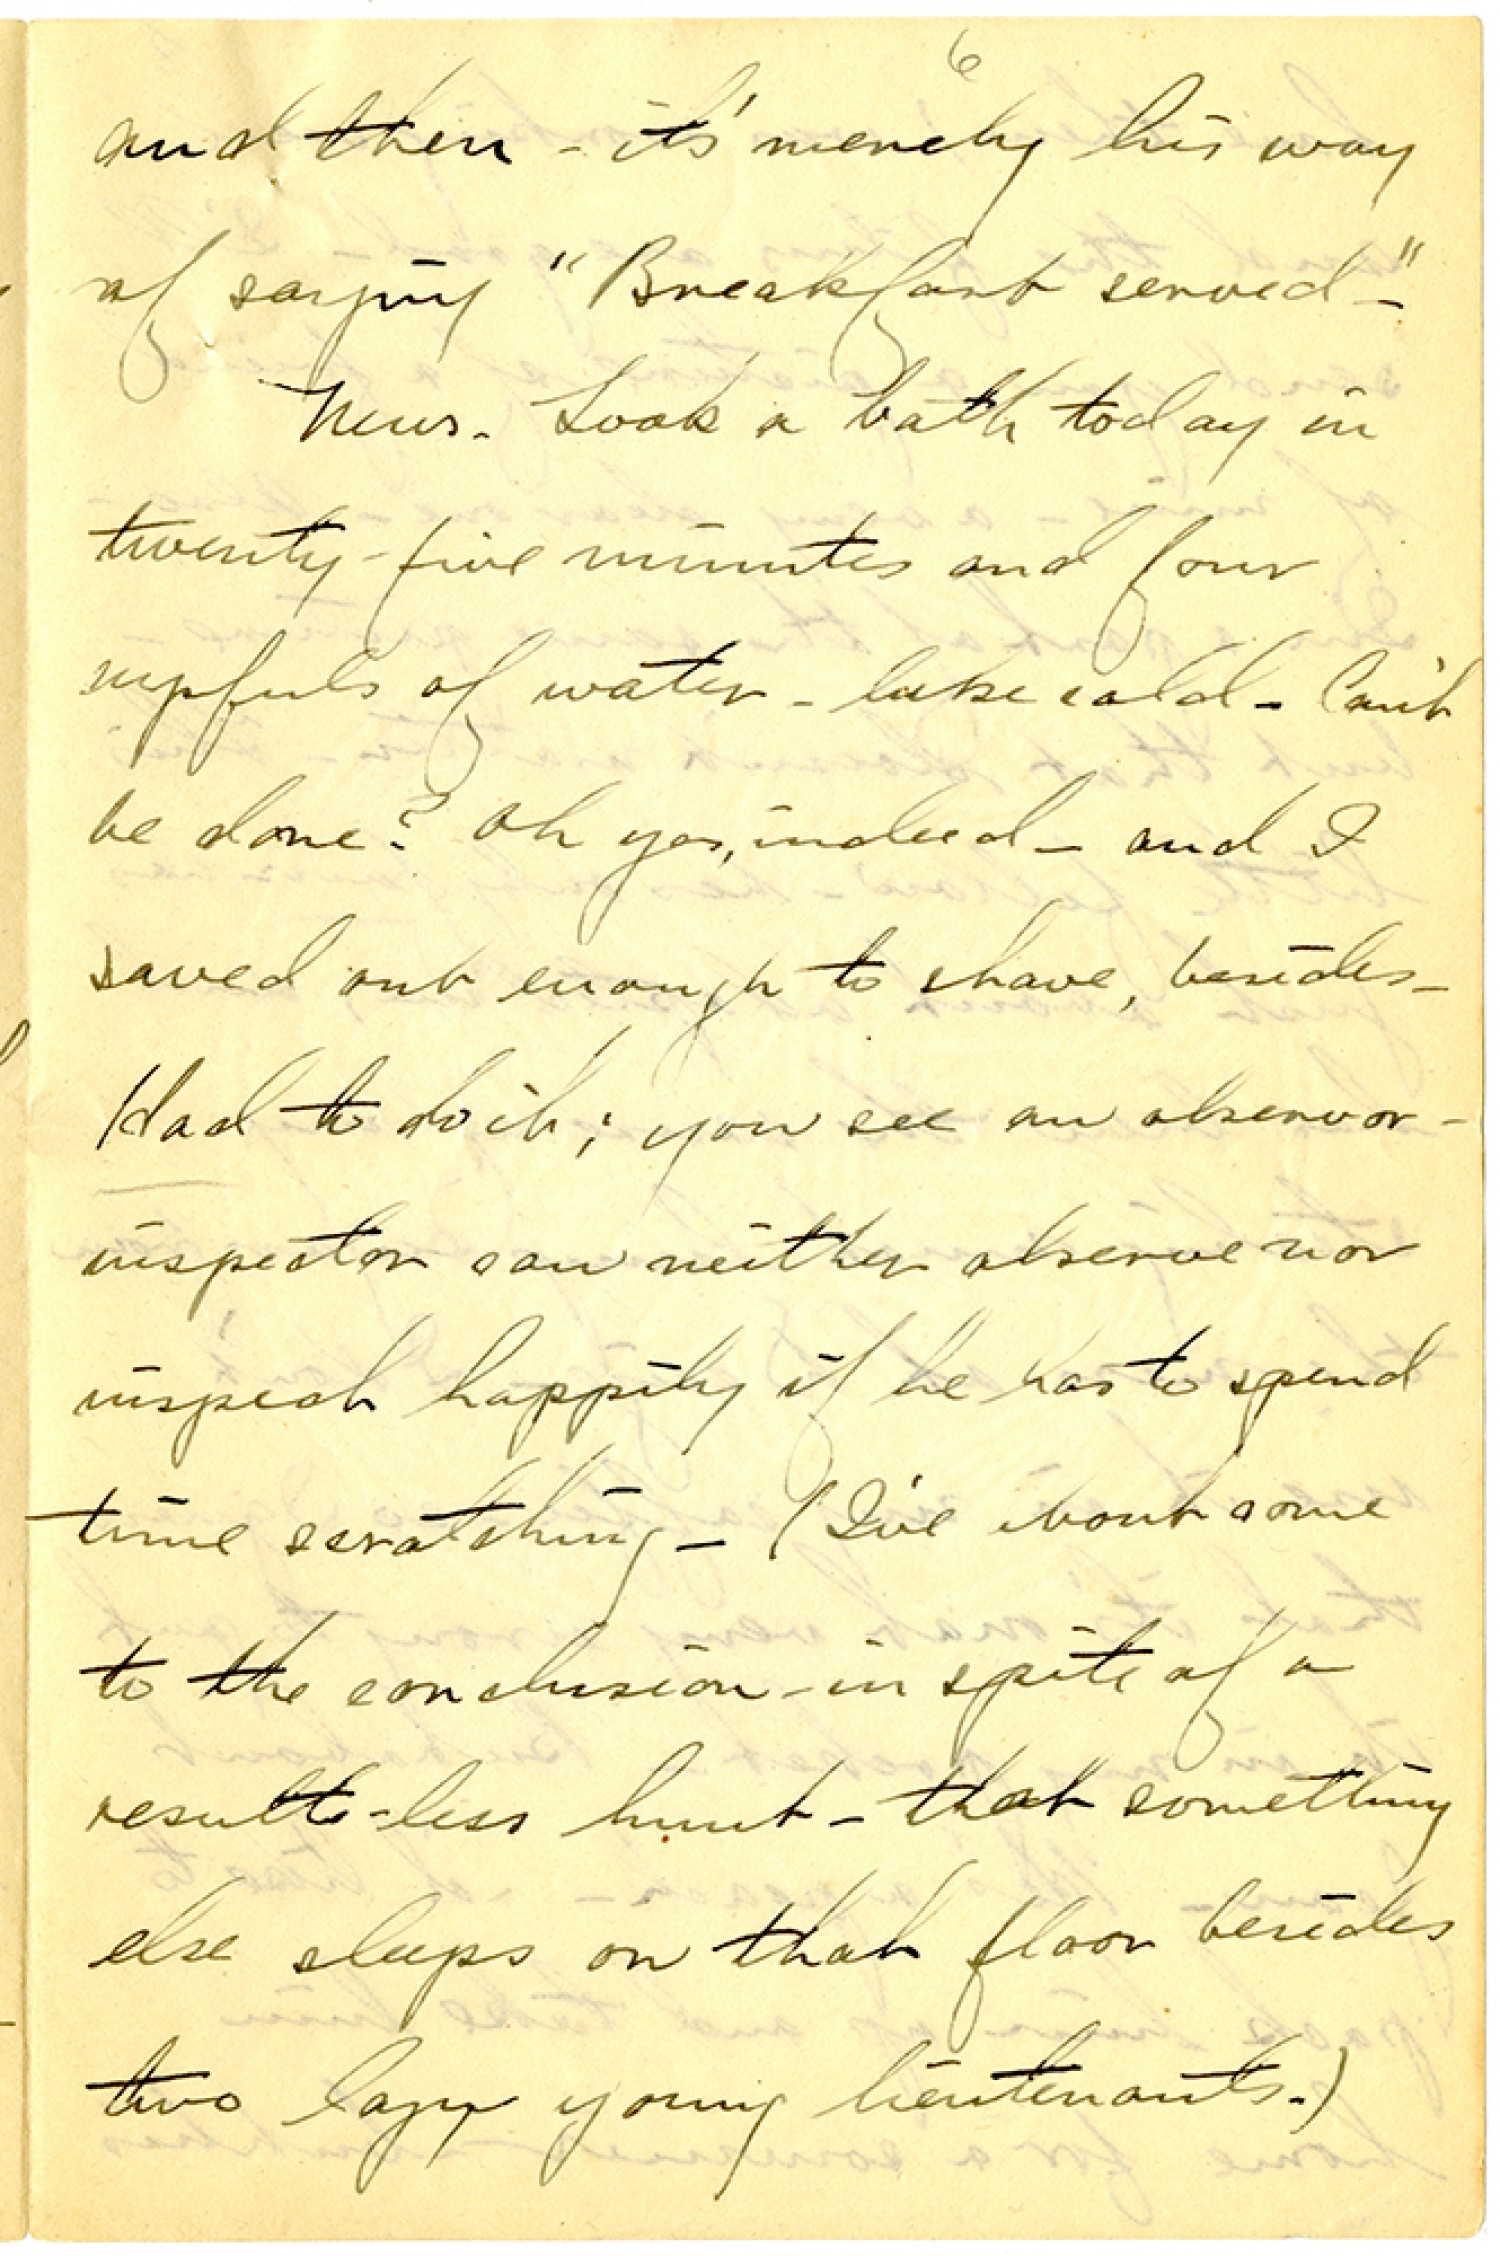 6
and then - it's merely his way
of saying "Breakfast served-"
News. Took a bath today in
twenty-five minutes and four
cupfuls of water - luke cold - Can't
be done? Oh yes, indeed - and I
saved out enough to shave, besides -
Had to do it; you see an observor-
inspector can neither observe nor
inspect happily if he has to spend
time scratching - (I've about come
to the conclusion - in spite of a
results-less hunt - that something
else sleeps on that floor besides
two lazy young lieutenants.)